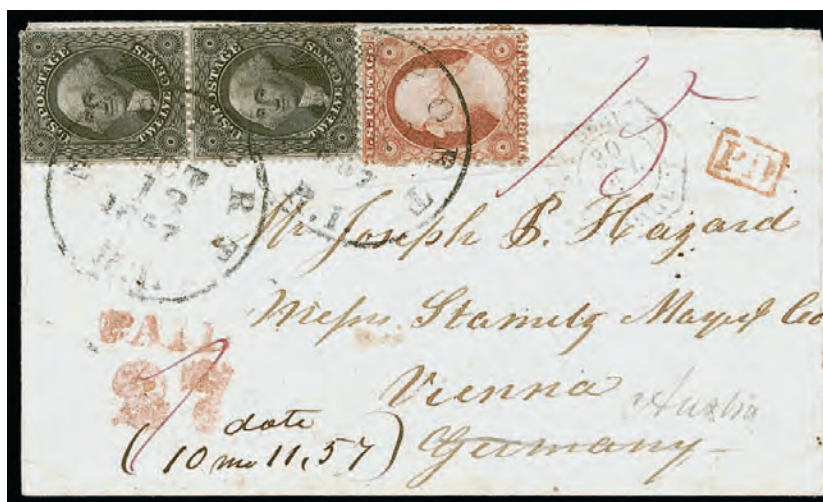 U.S. POSTAGE
TWELVE CENTS
U.S. POSTAGE
TWELVE CENTS
U.S. POSTAGE
THREE CENTS
15
PD
R.I
Mr Joseph P. Hazard
Messrs Stametz Mayer & Co
Vienna
Austria
Germany
PAID
27
date
(10 mo 11, 57)